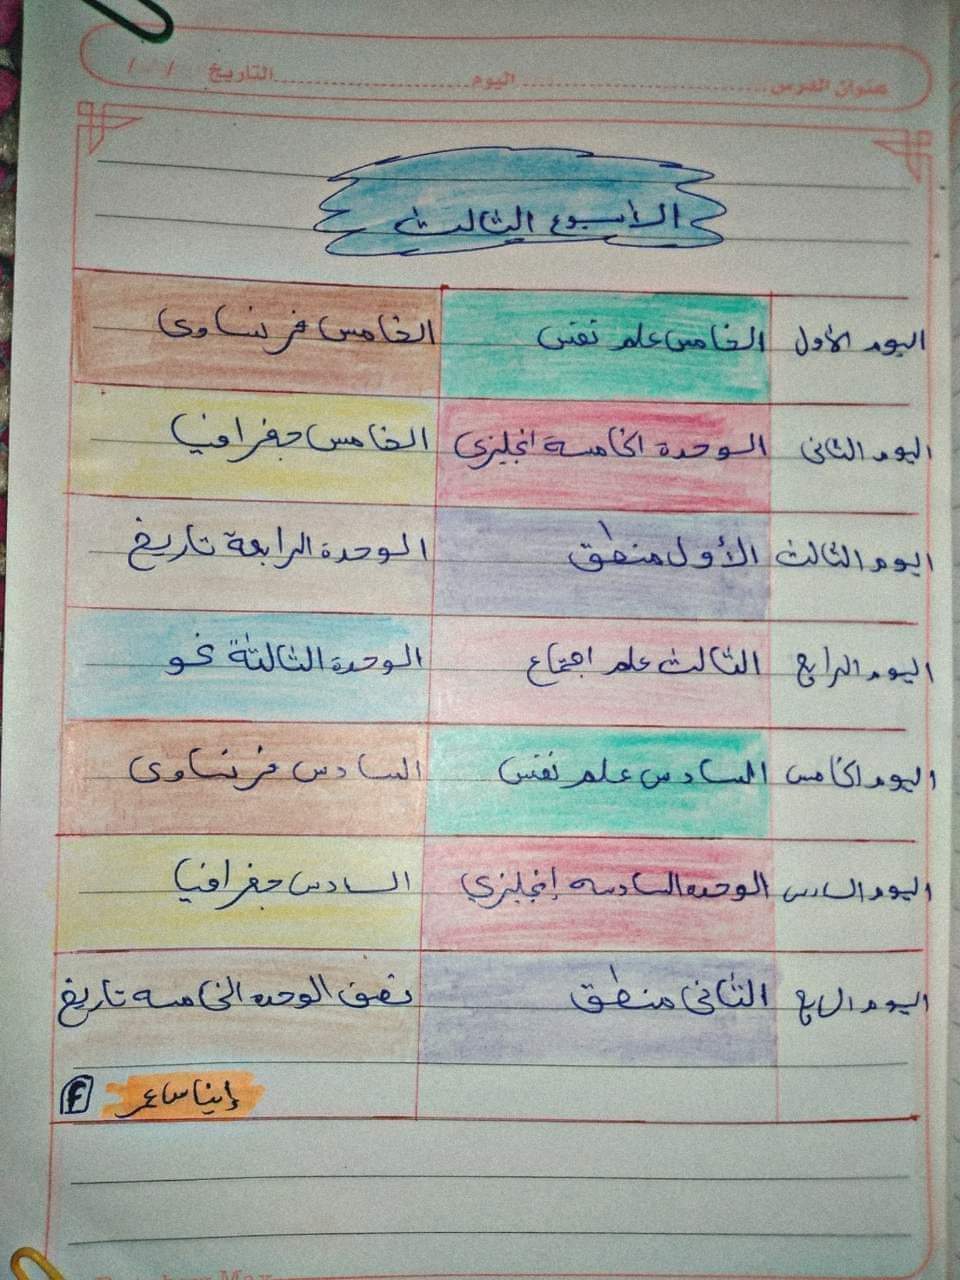 عنوان الدرس ........................ اليوم ........................ التاريخ / /
الأسبوع الثالث
اليوم الأول الخامس علم نفس الخامس فرنساوى
اليوم الثانى الوحدة الخامسة انجليزي الخامس جغرافيا
اليوم الثالث الأول منطق الوحدة الرابعة تاريخ
اليوم الرابع الثالث علم اجتماع الوحدة الثالثة نحو
اليوم الخامس السادس علم نفس السادس فرنساوى
اليوم السادس الوحده السادسه إنجليزي السادس جغرافيا
اليوم السابع الثانى منطق نصف الوحده الخامسه تاريخ
f